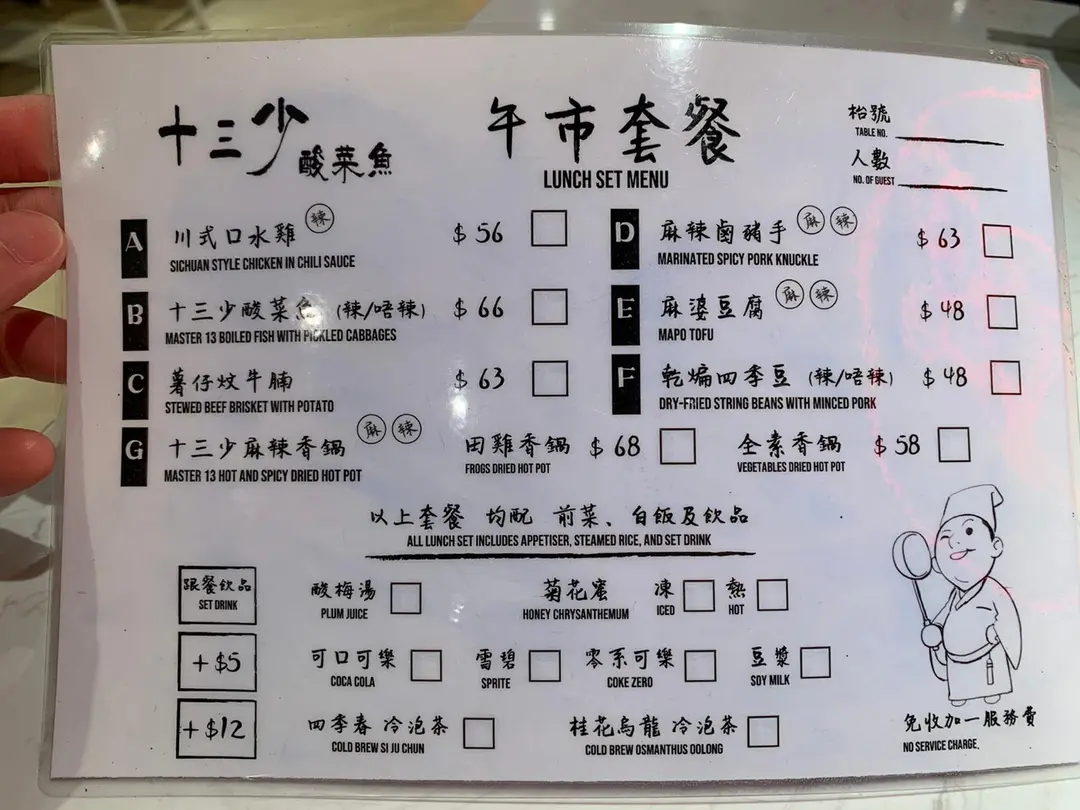 十三少 酸菜魚
午市套餐
LUNCH SET MENU
枱號
TABLE NO.
人數
NO. OF GUEST
A 川式口水雞 辣 $56
SICHUAN STYLE CHICKEN IN CHILI SAUCE
B 十三少酸菜魚 (辣/唔辣) $66
MASTER 13 BOILED FISH WITH PICKLED CABBAGES
C 薯仔炆牛腩 $63
STEWED BEEF BRISKET WITH POTATO
D 麻辣鹵豬手 麻 辣 $63
MARINATED SPICY PORK KNUCKLE
E 麻婆豆腐 麻 辣 $48
MAPO TOFU
F 乾煸四季豆 (辣/唔辣) $48
DRY-FRIED STRING BEANS WITH MINCED PORK
G 十三少麻辣香鍋 麻 辣 田雞香鍋 $68 全素香鍋 $58
MASTER 13 HOT AND SPICY DRIED HOT POT FROGS DRIED HOT POT VEGETABLES DRIED HOT POT
以上套餐 均配 前菜、白飯及飲品
ALL LUNCH SET INCLUDES APPETISER, STEAMED RICE, AND SET DRINK
跟餐飲品 酸梅湯 菊花蜜 凍 熱
SET DRINK PLUM JUICE HONEY CHRYSANTHEMUM ICED HOT
+$5 可口可樂 雪碧 零系可樂 豆漿
COCA COLA SPRITE COKE ZERO SOY MILK
+$12 四季春 冷泡茶 桂花烏龍 冷泡茶
COLD BREW SI JU CHUN COLD BREW OSMANTHUS OOLONG
免收加一服務費
NO SERVICE CHARGE.